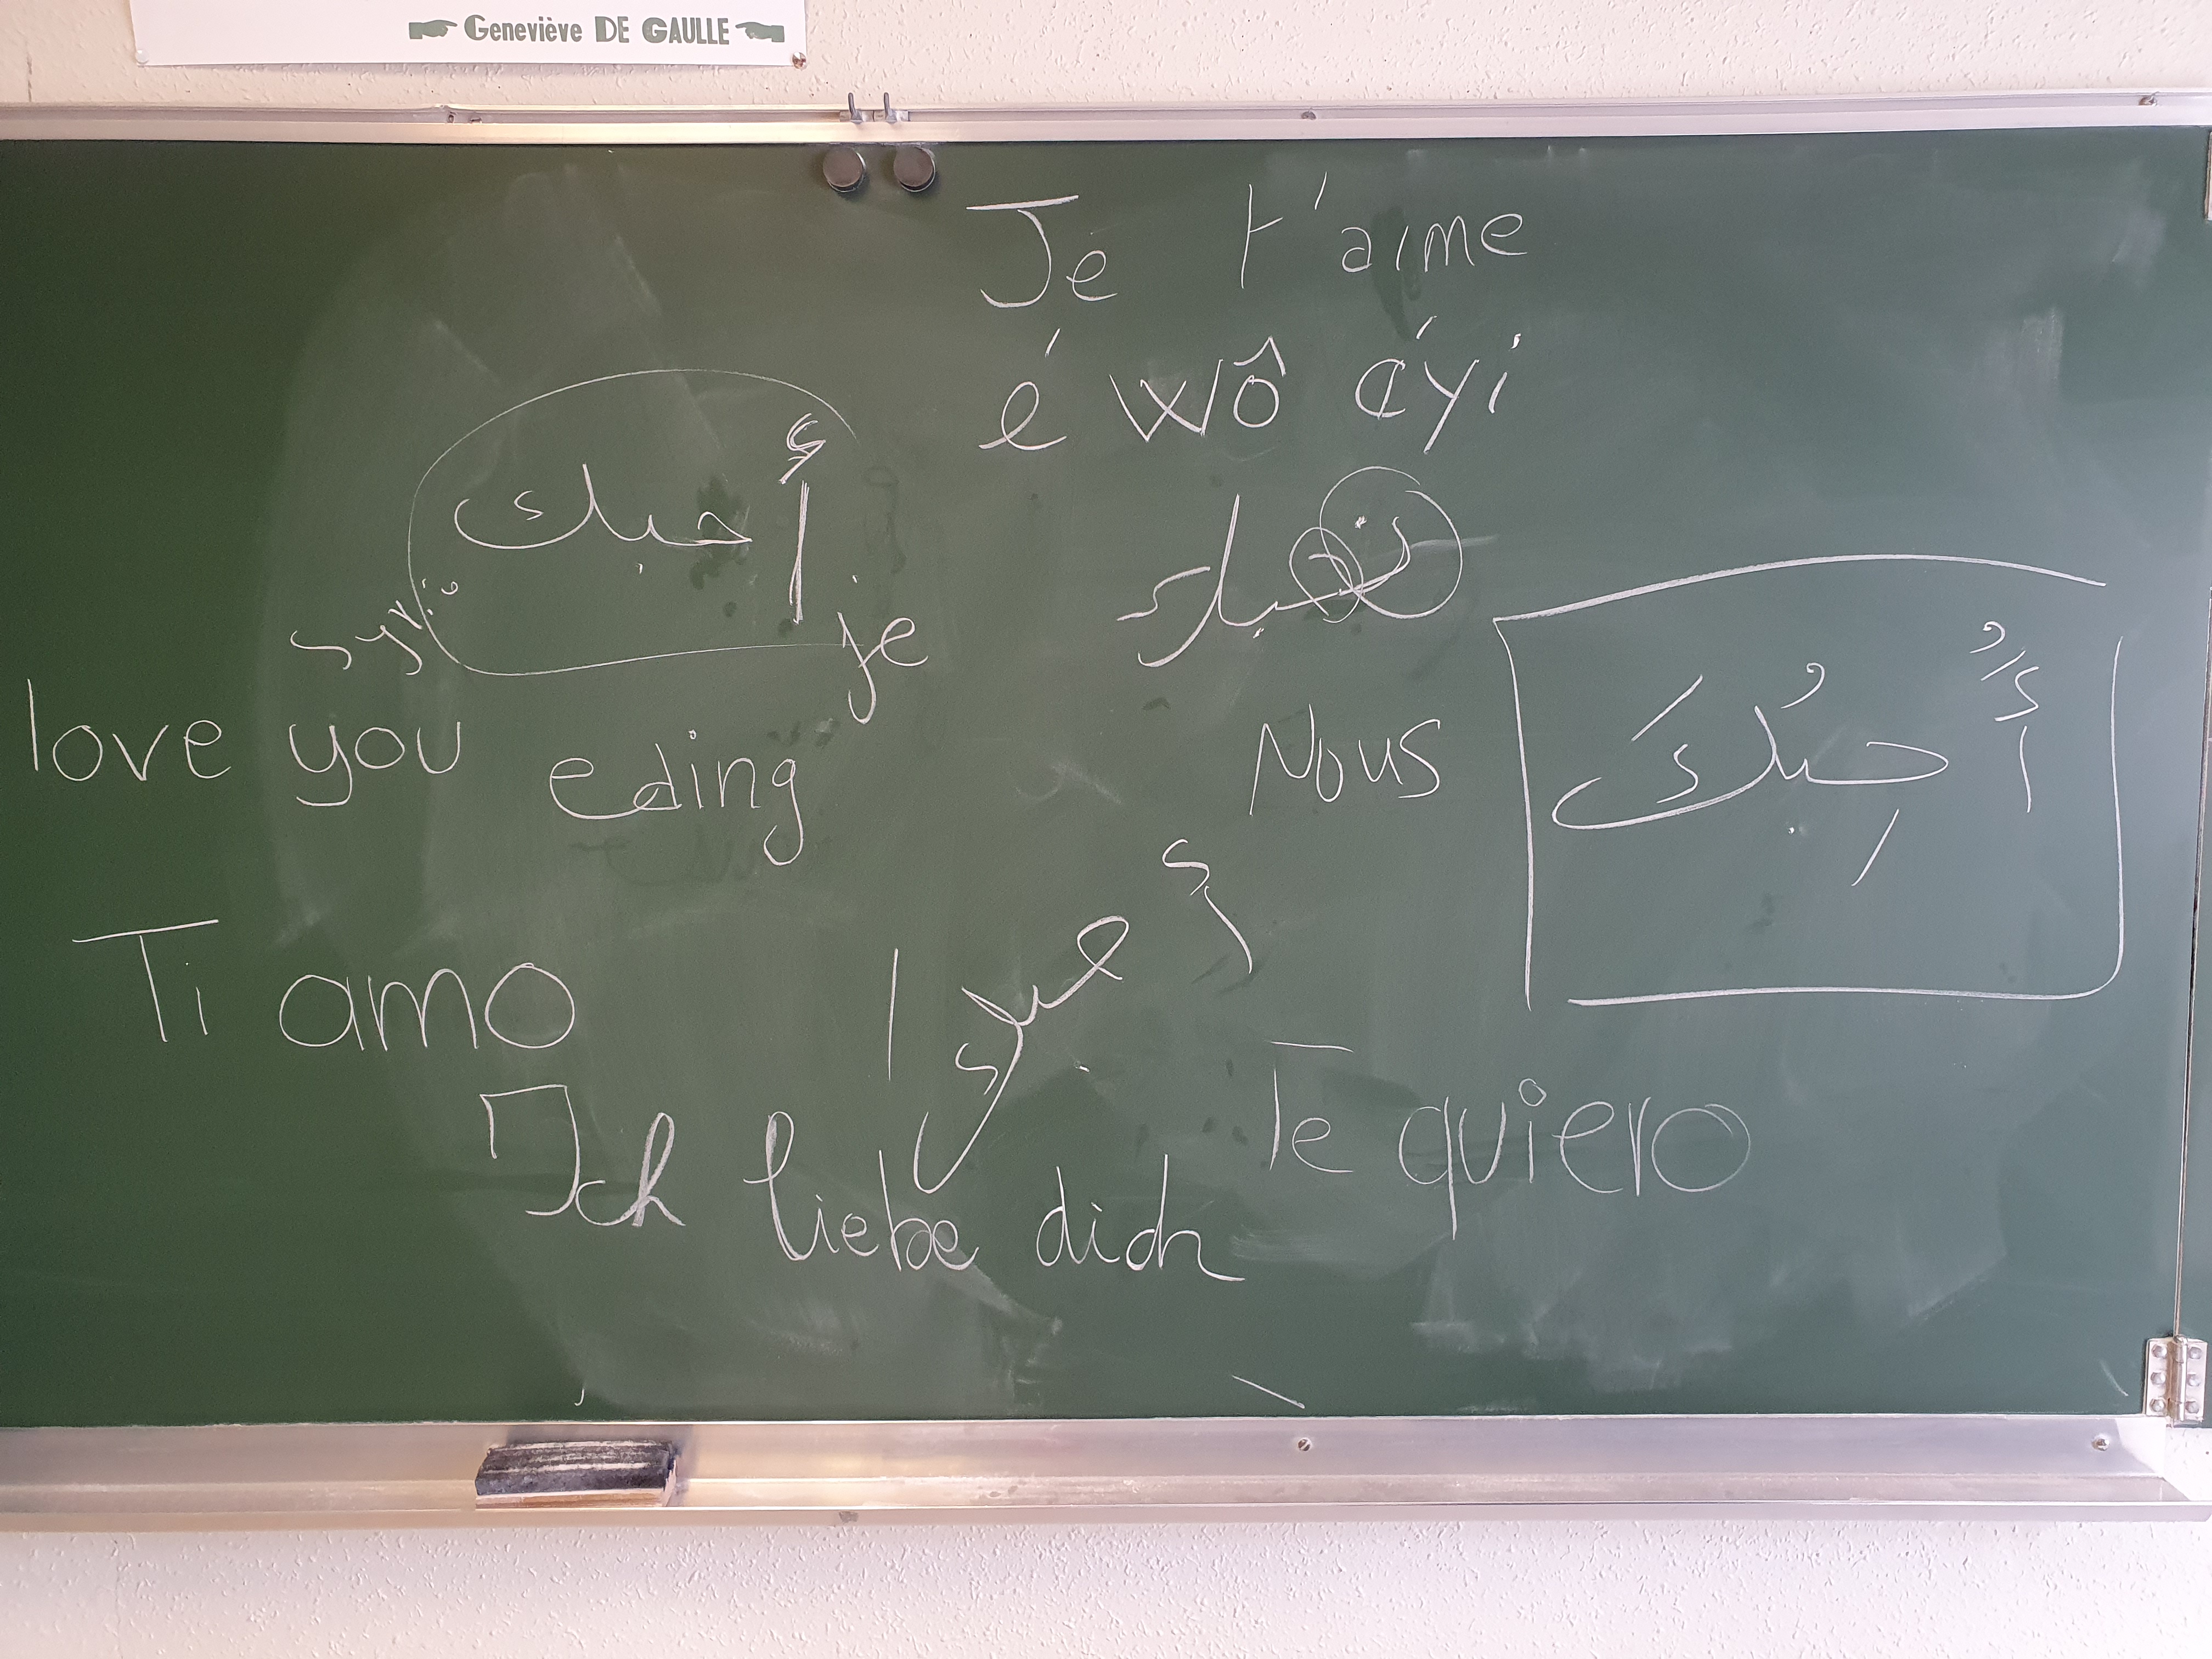 Geneviève DE GAULLE
Je t'aime
é wô éyi
أحبك
je
love you
eding
Nous
أُحِبُكَ
Ti amo
أحبك
I
Te quiero
Ich liebe dich